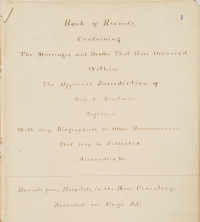 1
Book of Records
Containing
The Marriages and Deaths That Have Occurred
Within
The Official Jurisdiction of
Rev. A. Gladwin.
Together
With any Biographical or Other Reminiscences
That may be Collected.
Alexandria, Va.
Burials from Hospitals, in the New Cemetery,
Recorded on Page